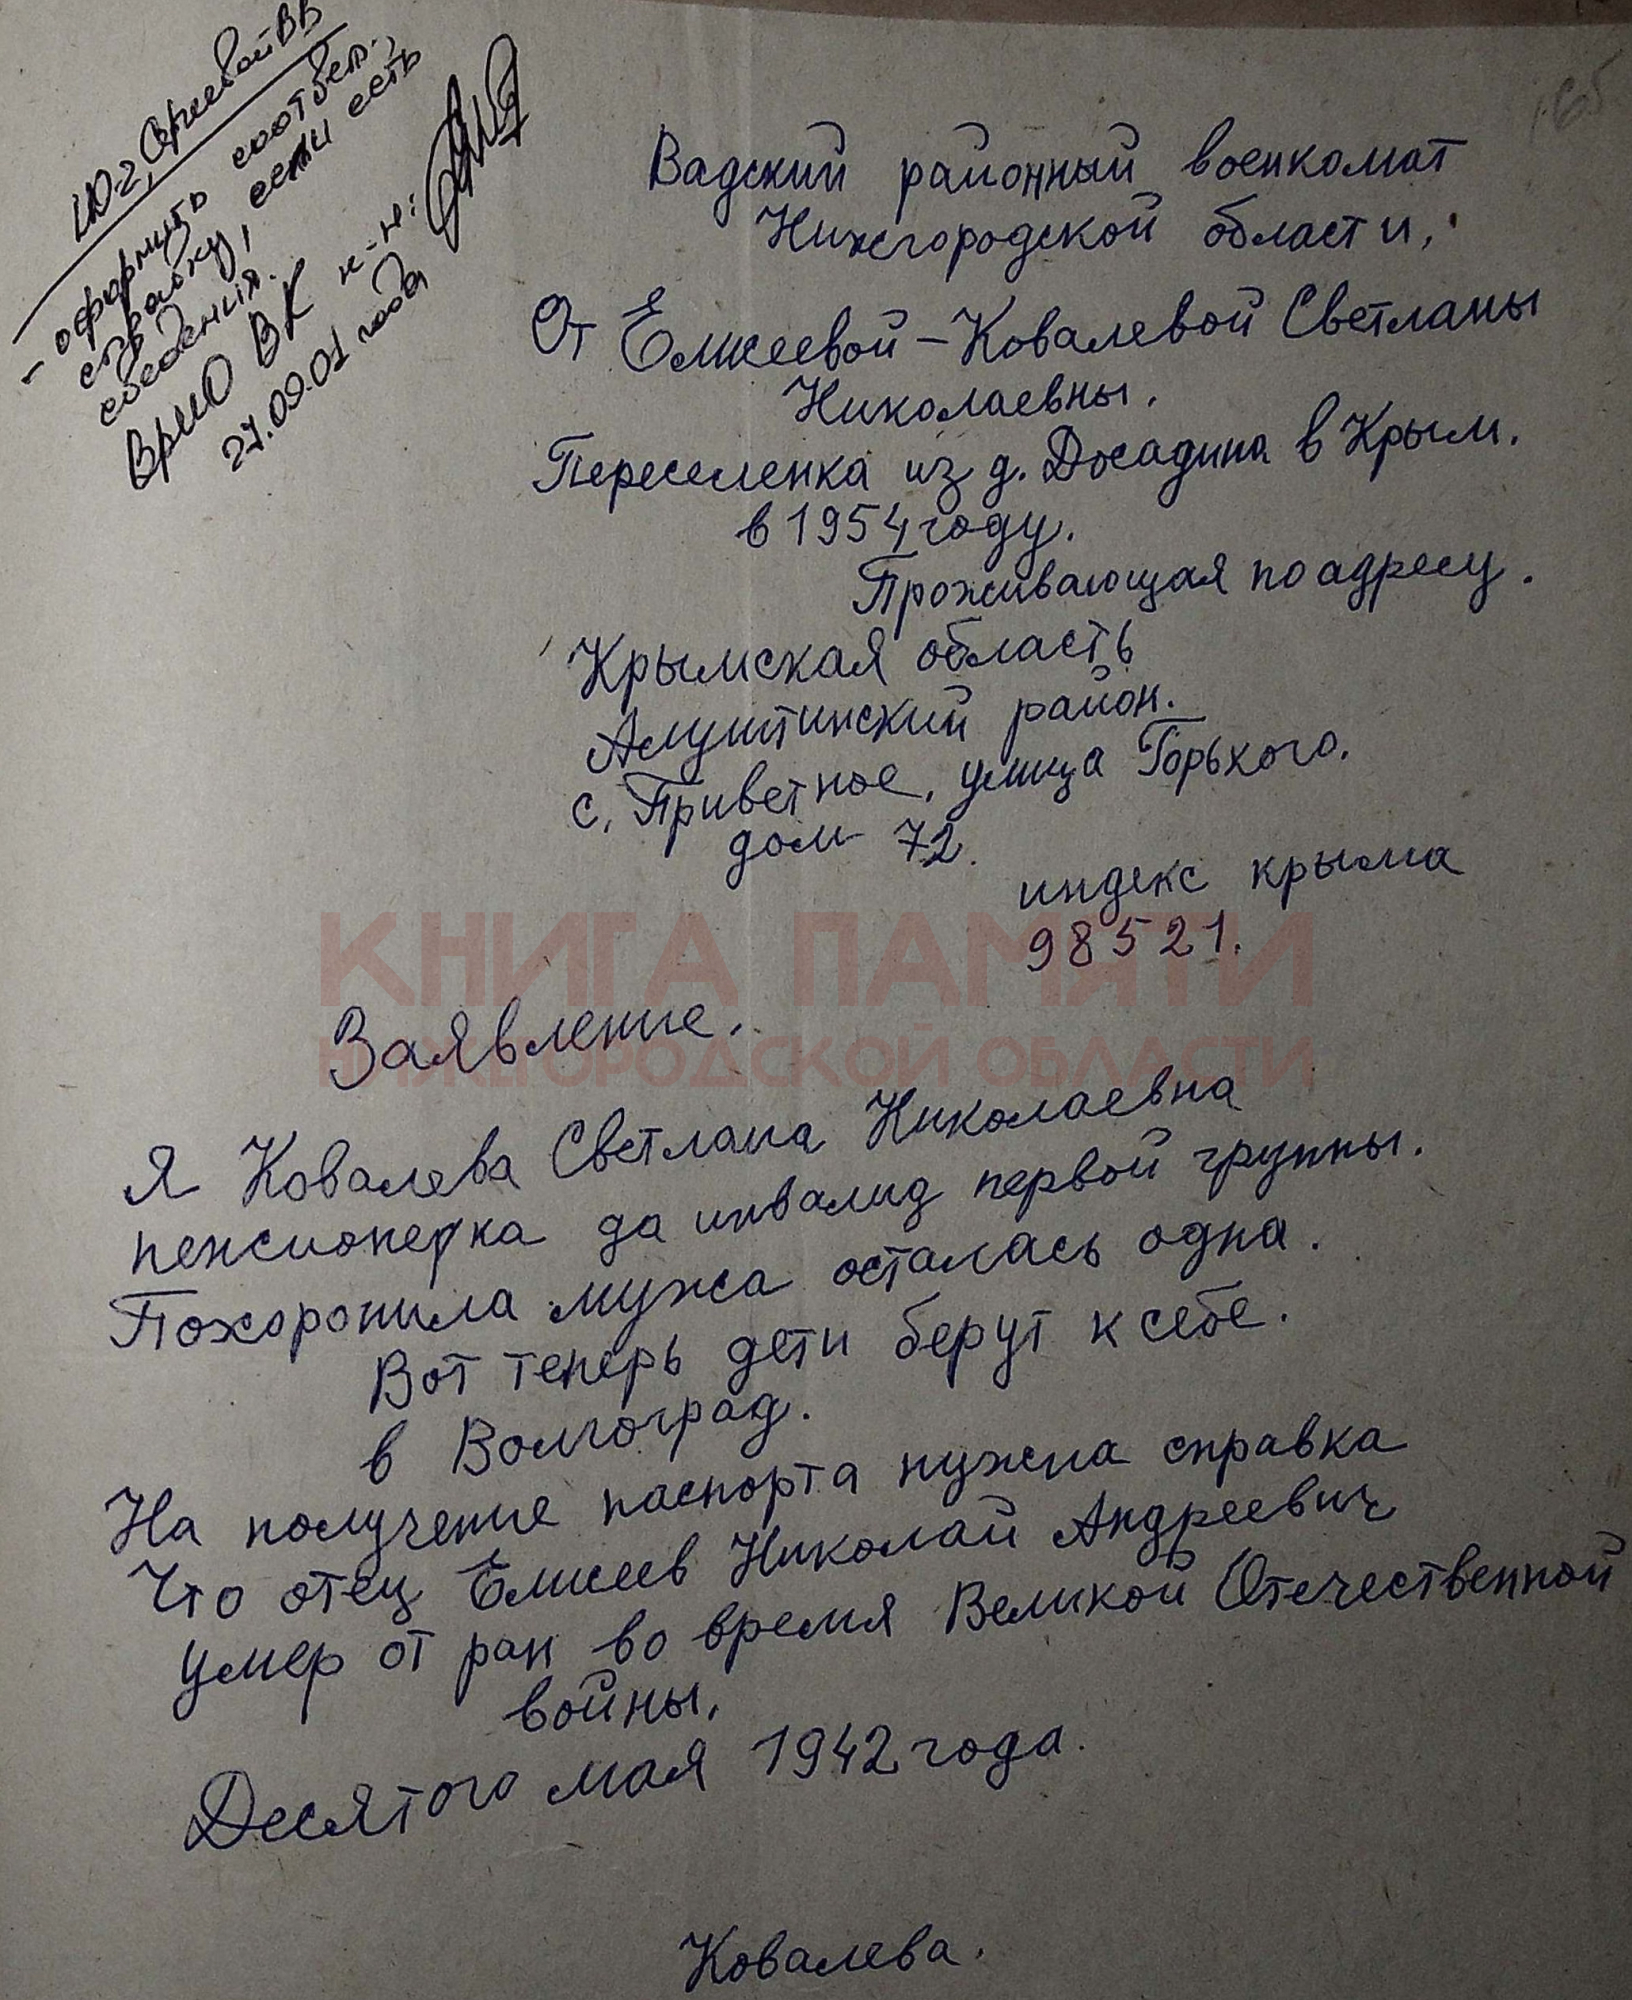 - оформить соответ.,
справку, если есть
сведения.
ВРИО ВК к-н:
27.09.01 года
Вадский районный военкомат
Нижегородской области,
От Елисеевой-Ковалевой Светланы
Николаевны.
Переселенка из д. Досадина в Крым.
в 1954 году.
Проживающая по адресу.
Крымская область
Алуштинский район.
с. Приветное, улица Горького.
дом 72.
индекс крыма
98521.
КНИГА ПАМЯТИ
НИЖЕГОРОДСКОЙ ОБЛАСТИ
Заявление.
Я Ковалева Светлана Николаевна
пенсионерка да инвалид первой группы.
Похоронила мужа осталась одна.
Вот теперь дети берут к себе.
в Волгоград.
На получение паспорта нужна справка
Что отец Елисеев Николай Андреевич
умер от ран во время Великой Отечественной
войны.
Десятого мая 1942 года.
Ковалева.